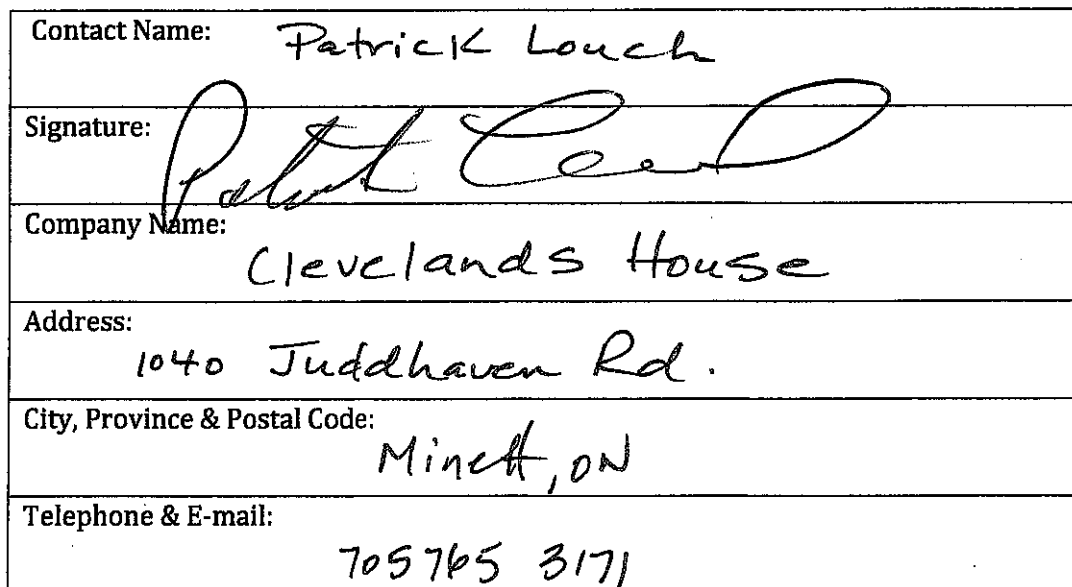 Contact Name: Patrick Louch
Signature:
Company Name: Clevelands House
Address: 1040 Juddhaven Rd.
City, Province & Postal Code: Minett, ON
Telephone & E-mail: 705 765 3171